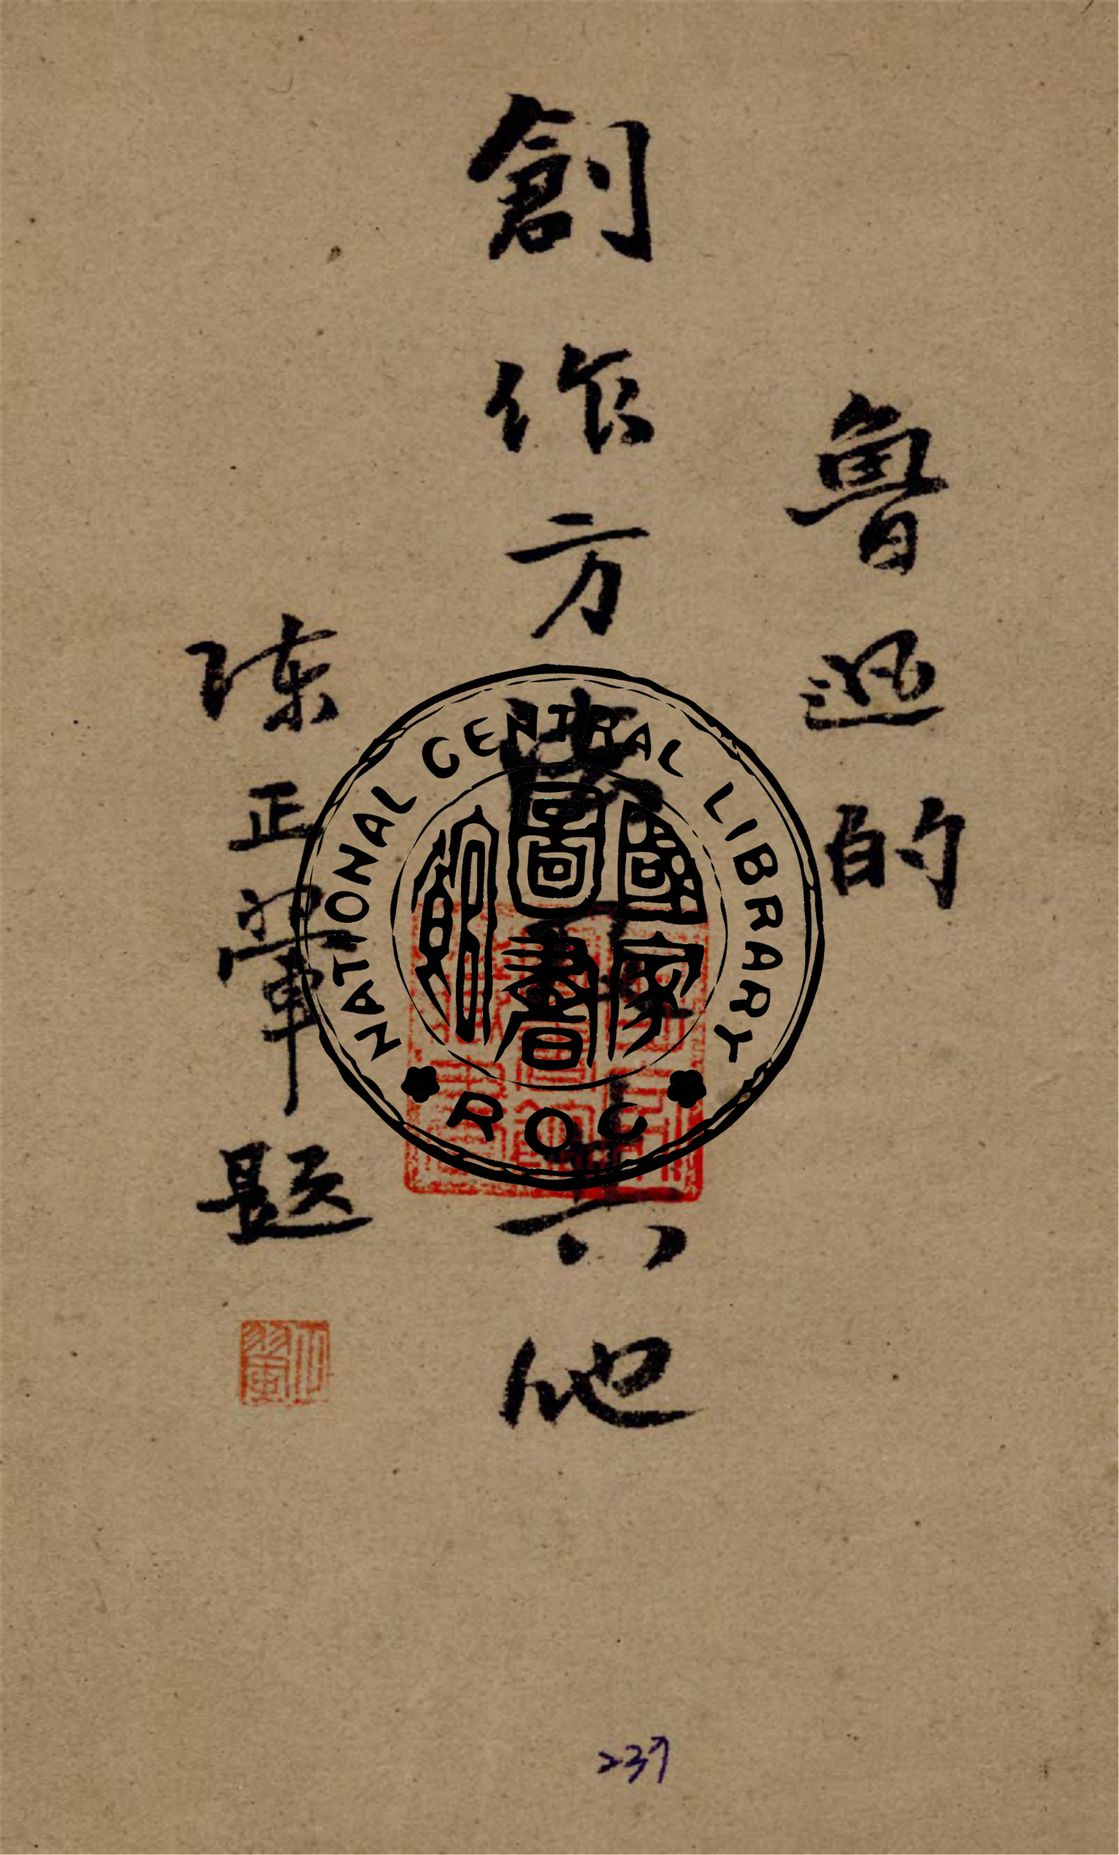 魯迅的
創作方法及其他
陳正翬題
NATIONAL CENTRAL LIBRARY
國家
圖書
館
ROC
239